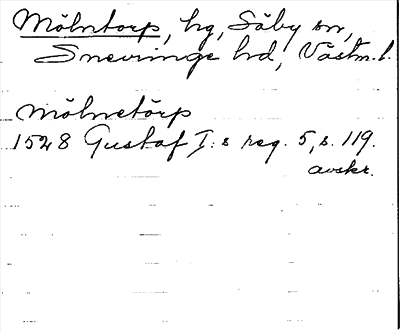 Mölntorp, hg, Säby sn,
Snevringe hd, Västm. l.
Mölnetörp
1528 Gustaf I:s reg. 5, s. 119.
avskr.